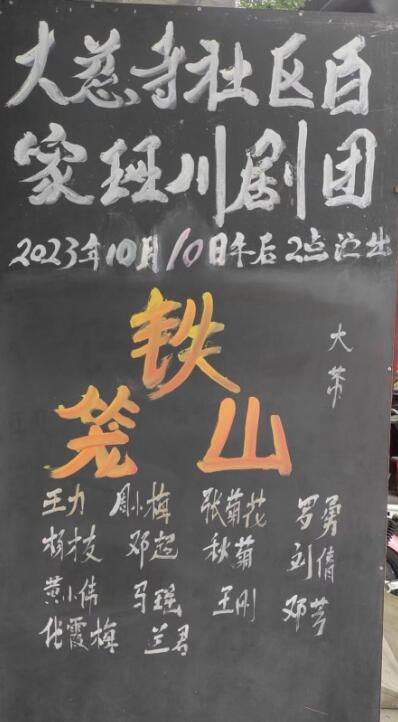 大慈寺社区百
家班川剧团
2023年10月10日午后2点演出
大幕
铁
笼山
王力 周小梅 张菊花 罗勇
杨枝 邓超 秋菊 刘倩
黄小伟 马瑶 王刚 邓芳
化霞梅 兰君